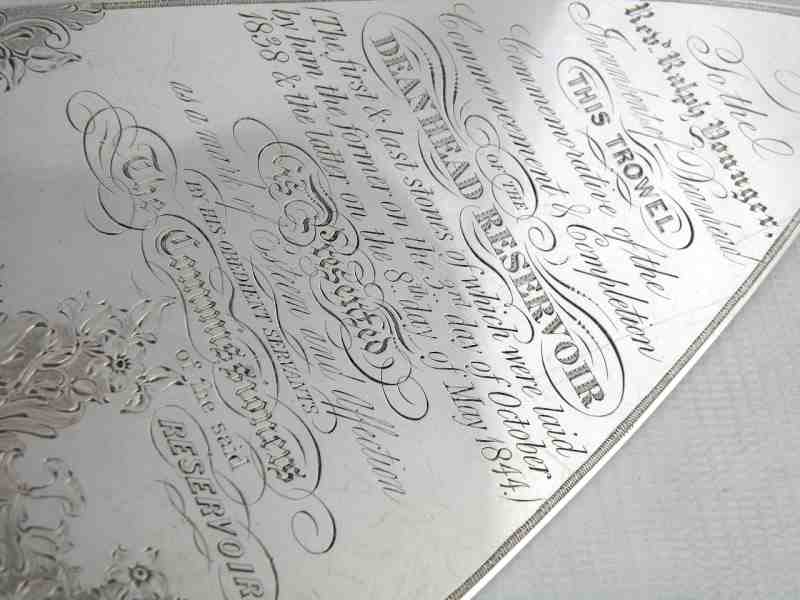 To the
Revd. Ralph Younger,
Incumbent of Deanhead
THIS TROWEL
Commemorative of the
Commencement & Completion
OF THE
DEANHEAD RESERVOIR
(The first & last stones of which were laid
by him the former on the 3rd. day of October
1838 & the latter on the 8th. day of May 1844.)
is Presented
as a mark of Esteem and Affection
BY HIS OBEDIENT SERVANTS
The Commissioners
of the said
RESERVOIR